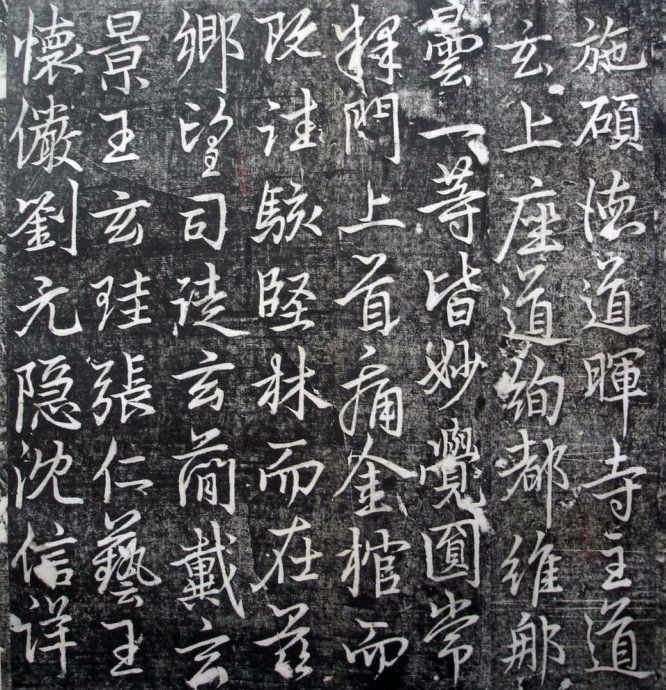 施碩德道暉寺主道
玄上座道絢都維那
曇一等皆妙覺圓常
釋門上首痛金棺而
既往駭堅林而在茲
鄉望司徒玄簡戴玄
景王玄珪張仁藝王
懷儼劉元隱沈信詳